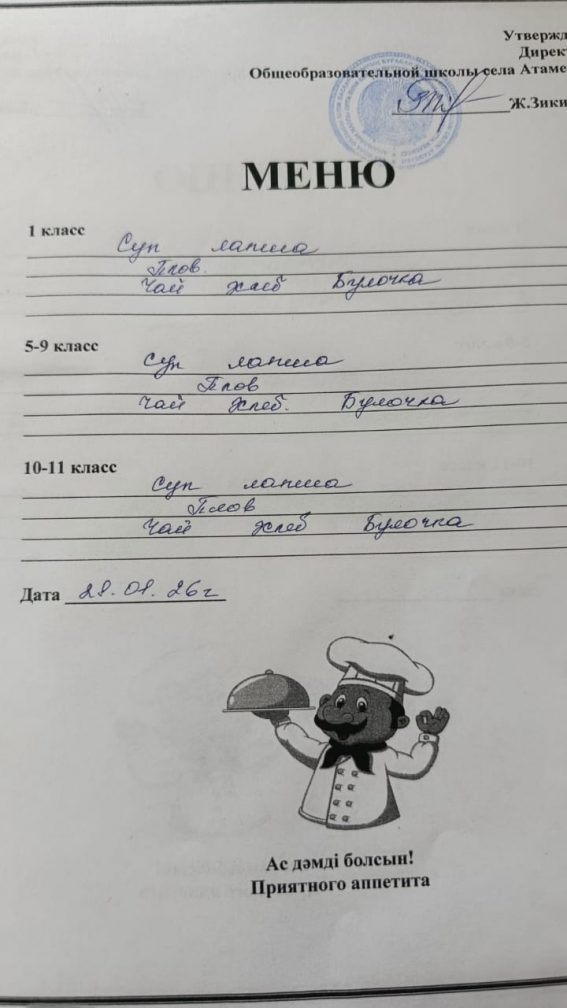 Утвержд
Дирек
Общеобразовательной школы села Атаме
Ж.Зики
МЕНЮ
1 класс
Суп лапша
Плов.
Чай хлеб Булочка
5-9 класс
Суп лапша
Плов
Чай хлеб. Булочка
10-11 класс
Суп лапша
Плов
Чай хлеб Булочка
Дата 28.01.26г
Ас дәмді болсын!
Приятного аппетита